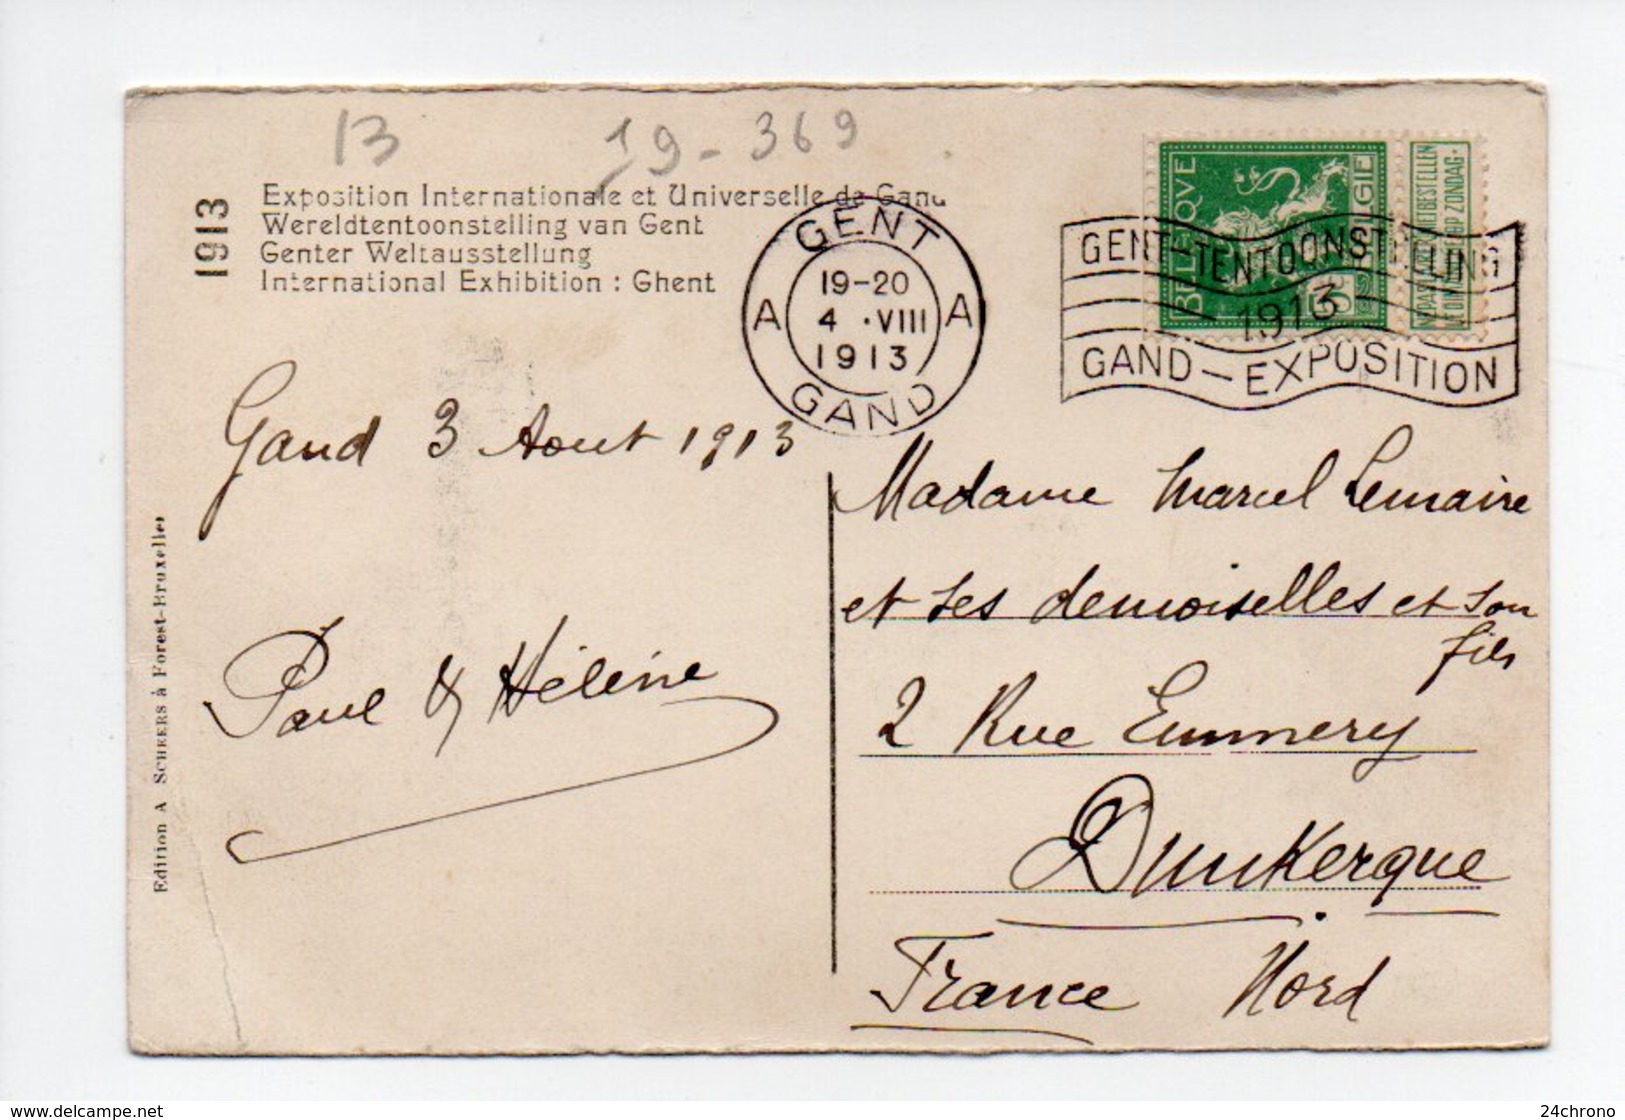 13
19-369
1913
Exposition Internationale et Universelle de Gand
Wereldtentoonstelling van Gent
Genter Weltausstellung
International Exhibition : Ghent
GENT
A 19-20 A
4 .VIII
1913
GAND
BELGIQUE
BELGIË
5
NE PAS LIVRER LE DIMANCHE
NIET BESTELLEN OP ZONDAG
GENT-TENTOONSTELLING
1913
GAND-EXPOSITION
Gand 3 Aout 1913
Paul & Hélène
Madame Marcel Lemaire
et ses demoiselles et son
fils
2 Rue Emmery
Dunkerque
France Nord
Edition A SCHEERS à Forest-Bruxelles
delcampe.net
24chrono